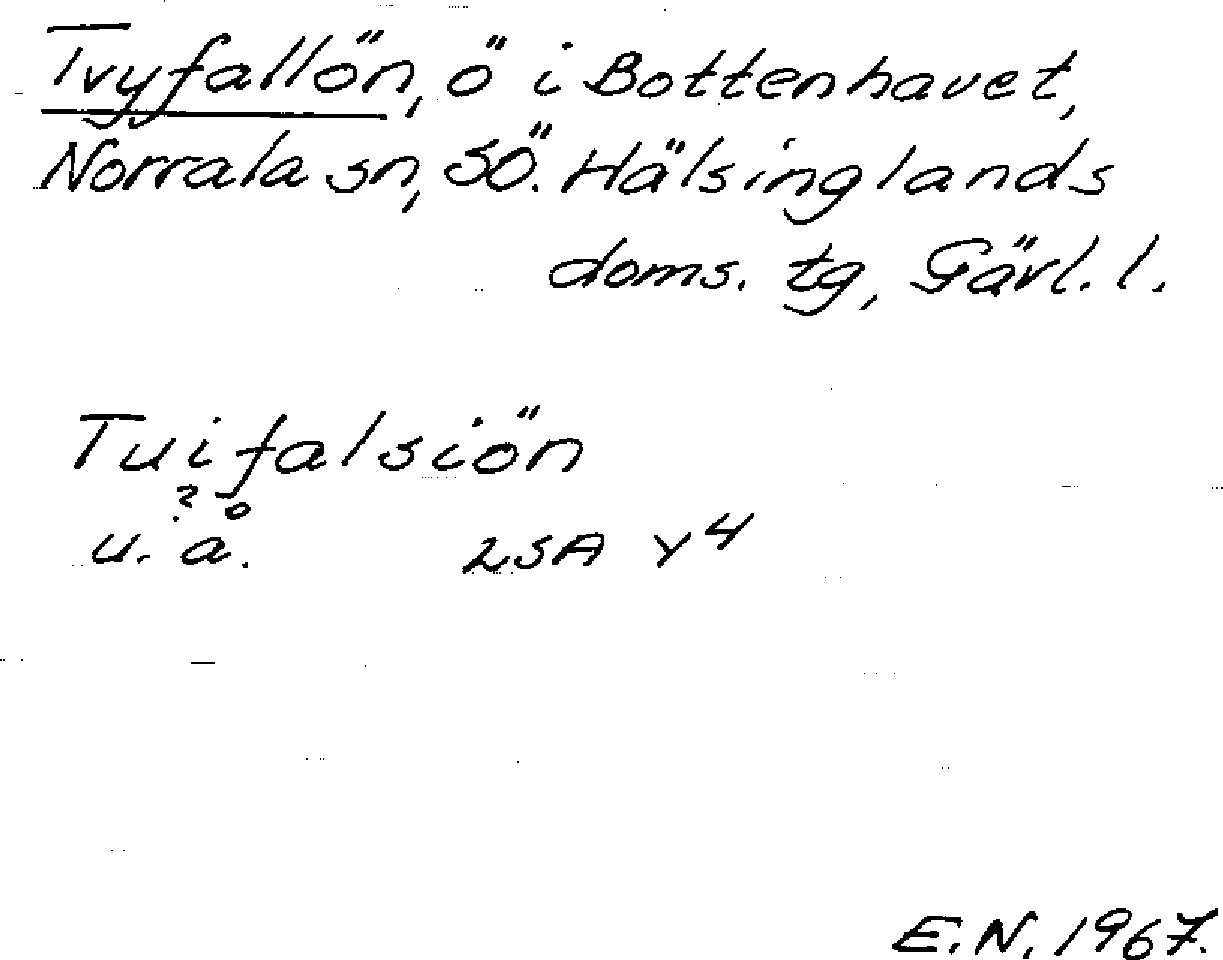 Tvyfallön, ö i Bottenhavet,
Norrala sn, SÖ. Hälsinglands
doms. tg, Gävl. l.
Tuifalsiön
?
u. å. LSA Y4
E.N. 1967.